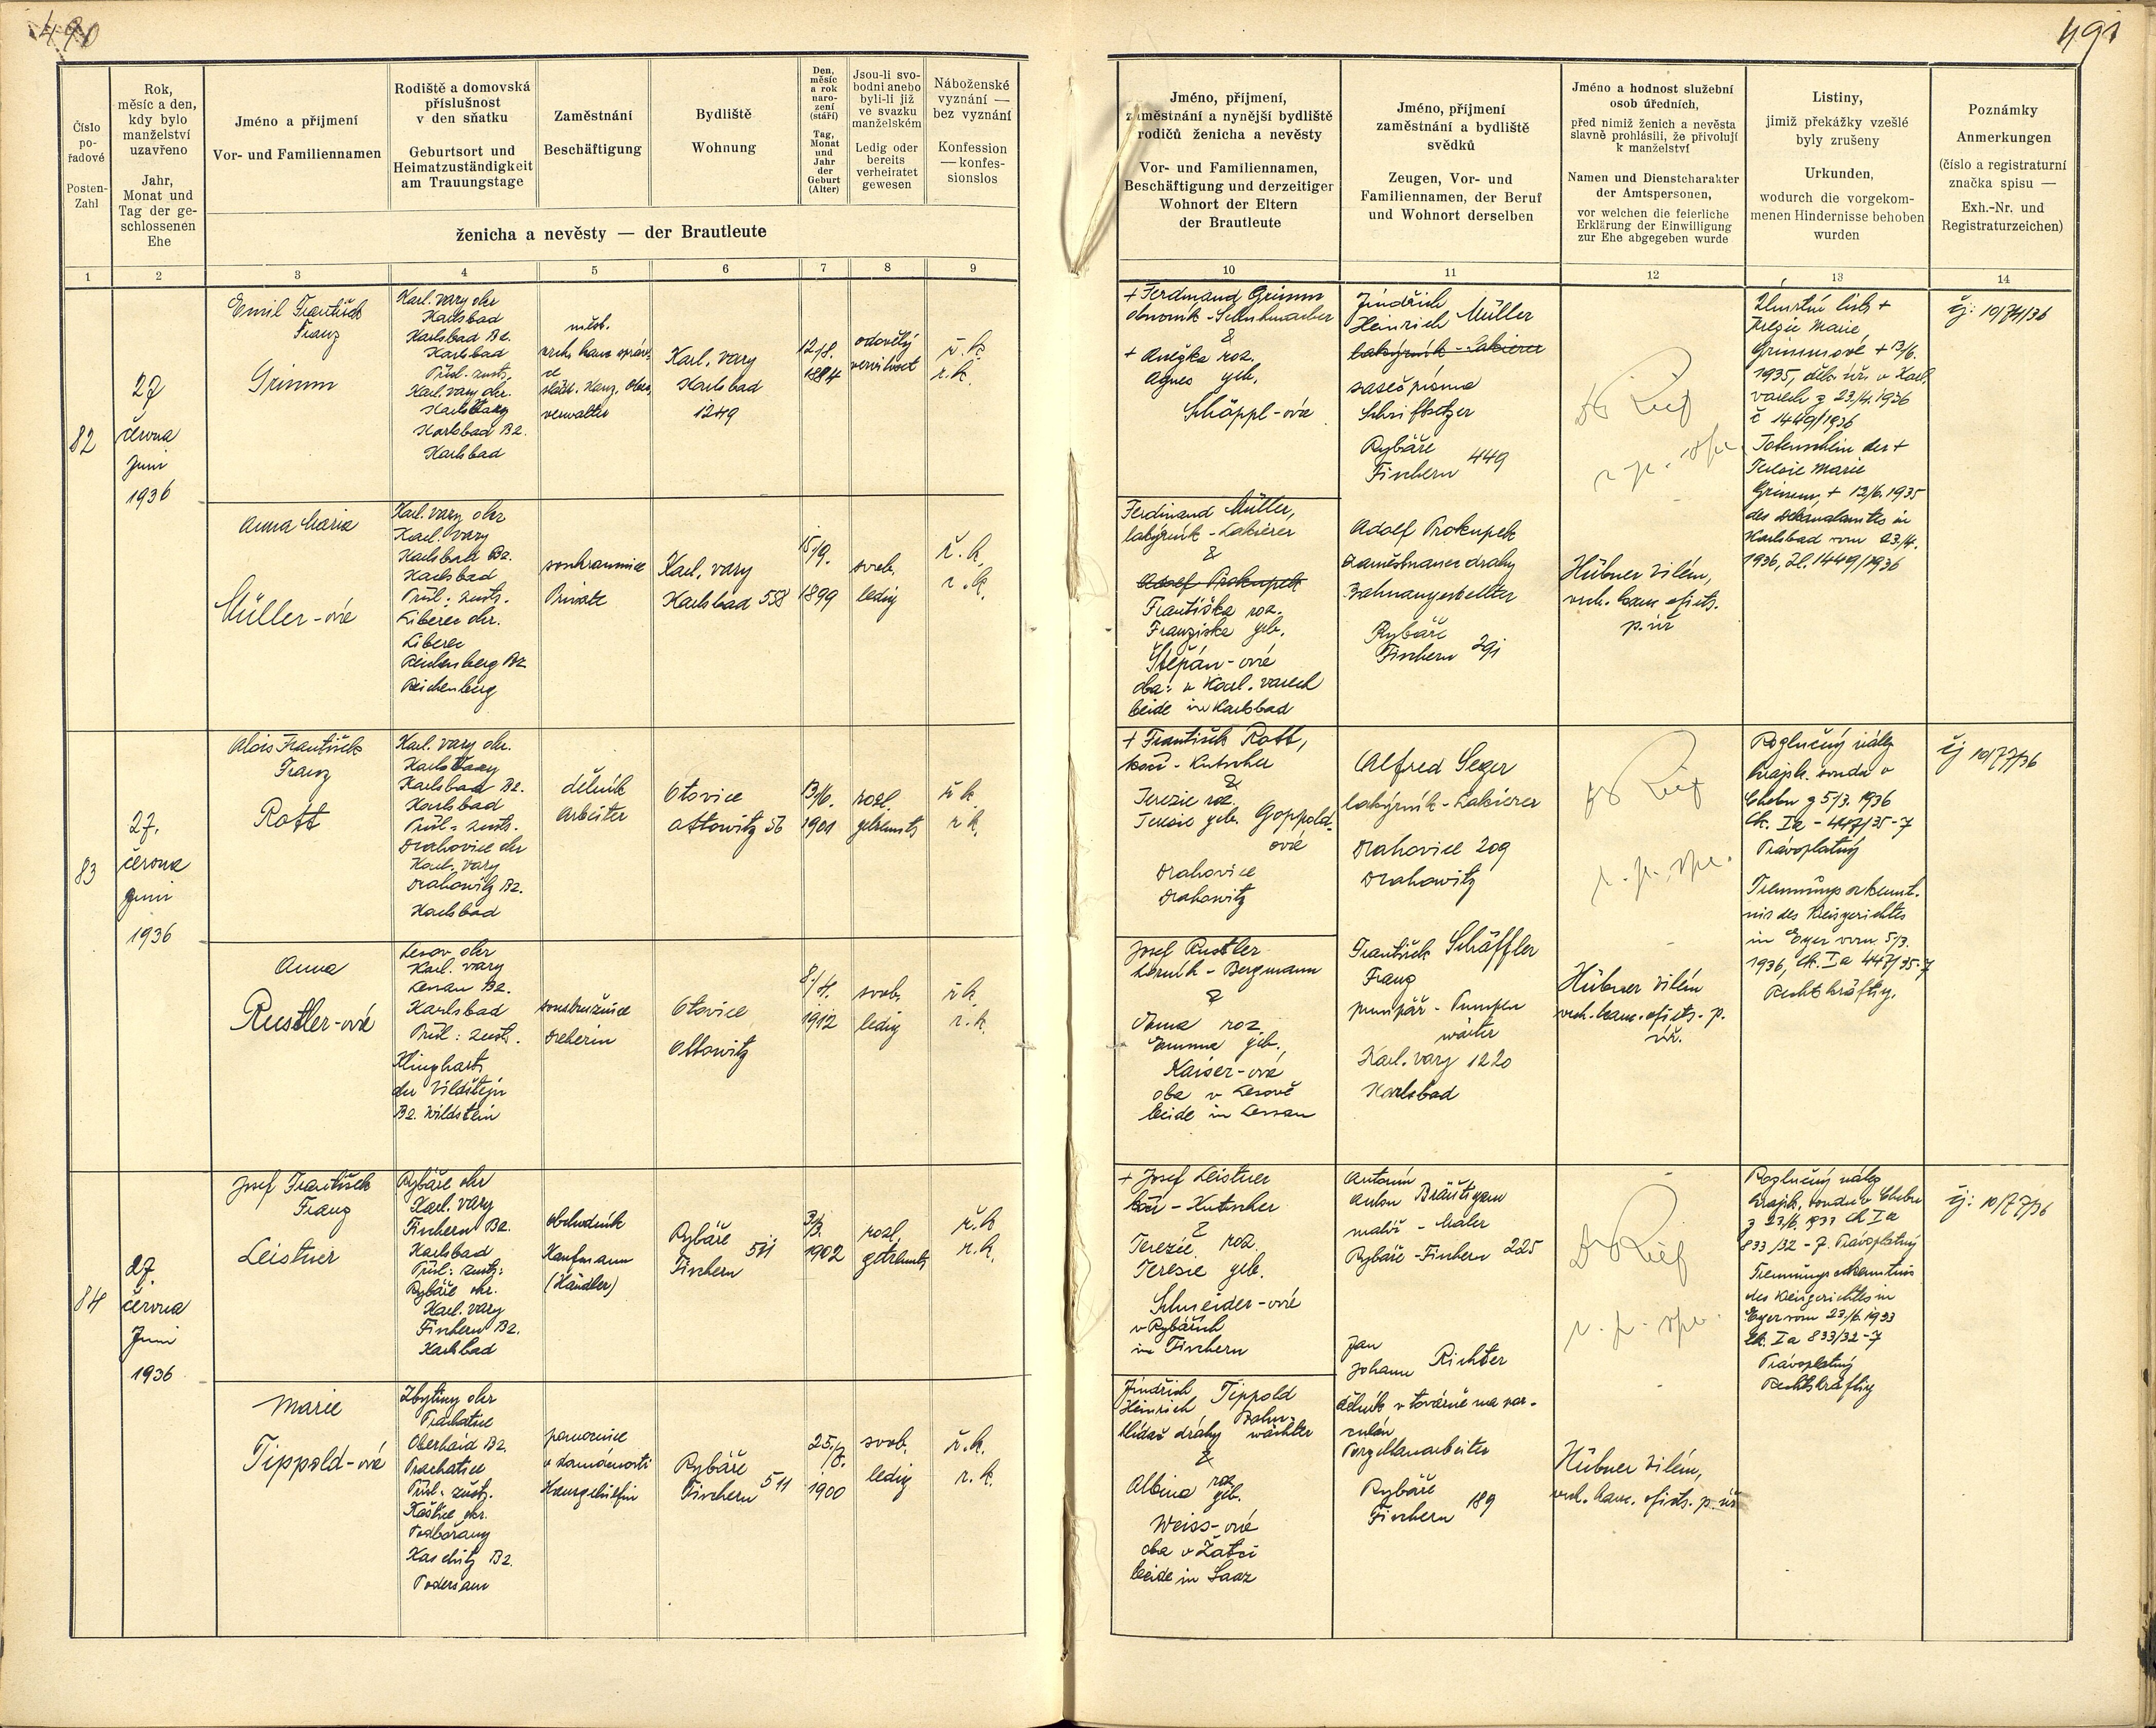 490
491
Číslo
po-
řadové
Posten-
Zahl
Rok,
měsíc a den,
kdy bylo
manželství
uzavřeno
Jahr,
Monat und
Tag der ge-
schlossenen
Ehe
Jméno a příjmení
Vor- und Familiennamen
Rodiště a domovská
příslušnost
v den sňatku
Geburtsort und
Heimatzuständigkeit
am Trauungstage
Zaměstnání
Beschäftigung
Bydliště
Wohnung
Den,
měsíc
a rok
naro-
zení
(stáří)
Tag,
Monat
und
Jahr
der
Geburt
(Alter)
Jsou-li svo-
bodni anebo
byli-li již
ve svazku
manželském
Ledig oder
bereits
verheiratet
gewesen
Náboženské
vyznání —
bez vyznání
Konfession
— konfes-
sionslos
ženicha a nevěsty — der Brautleute
Jméno, příjmení,
zaměstnání a nynější bydliště
rodičů ženicha a nevěsty
Vor- und Familiennamen,
Beschäftigung und derzeitiger
Wohnort der Eltern
der Brautleute
Jméno, příjmení
zaměstnání a bydliště
svědků
Zeugen, Vor- und
Familiennamen, der Beruf
und Wohnort derselben
Jméno a hodnost služební
osob úředních,
před nimiž ženich a nevěsta
slavně prohlásili, že přivolují
k manželství
Namen und Dienstcharakter
der Amtspersonen,
vor welchen die feierliche
Erklärung der Einwilligung
zur Ehe abgegeben wurde
Listiny,
jimiž překážky vzešlé
byly zrušeny
Urkunden,
wodurch die vorgekom-
menen Hindernisse behoben
wurden
Poznámky
Anmerkungen
(číslo a registraturní
značka spisu —
Exh.-Nr. und
Registraturzeichen)
1 2 3 4 5 6 7 8 9 10 11 12 13 14
82
27
června
Juni
1936
Emil František
Franz
Grimm
Karl. vary okr
Karlsbad
Karlsbad Bz.
Karlsbad
Přísl. zust.
Karl. vary okr.
Karl. vary
Karlsbad Bz.
Karlsbad
měst.
vrch. kanc. správ-
ce
städt. Kanz. Ober-
verwalter
Karl. vary
Karlsbad
1249
12/8.
1884
odovělý
verwitwet
ř. k.
r. k.
+ Ferdinand Grimm
obuvník - Schuhmacher
&
+ Anežka roz.
Agnes geb.
Schöppl-ová
Jindřich
Heinrich Müller
lakýrník - Lakierer
sazeč písma
Schriftsetzer
Rybáře
Fischern 449
Úmrtní list +
Terezie Marie
Grimmové + 13/6.
1935, děk. úř. v Karl.
varech z 23/4. 1936
č 1449/1936
Totenschein der +
Teresie Marie
Grimm, + 13/6. 1935
des Dekanalamtes in
Karlsbad vom 23./4.
1936, Zl. 1449/1936
čj: 10/74/36
Anna Maria
Müller-ová
Karl. vary okr
Karl. vary
Karlsbad Bz.
Karlsbad
Přísl: zust.
Liberec okr.
Liberec
Reichenberg Bz
Reichenberg
soukromnice
Private
Karl. vary
Karlsbad 558
15/9.
1899
svob.
ledig
ř. k.
r. k.
Ferdinand Müller,
lakýrník - Lakierer
&
Adolf Prokupek
Františka roz.
Franziska geb.
Štěpán-ová
oba: v Karl. varech
beide in Karlsbad
Adolf Prokupek
zaměstnanec dráhy
Bahnangestellter
Rybáře
Fischern 291
Hübner Vilém,
vrch. kanc. oficts.
p. úř
83
27.
června
Juni
1936
Alois František
Franz
Rott
Karl. vary okr.
Karl. vary
Karlsbad Bz.
Karlsbad
Přísl: zust.
Drahovice okr
Karl. vary
Drahowitz Bz.
Karlsbad
dělník
Arbeiter
Otovice
Ottowitz 56
13/6.
1901
rozl.
getrennt
ř k.
r k.
+ František Rott,
kočí - Kutscher
&
Terezie roz.
Teresie geb. Goppold-
ová
Drahovice
Drahowitz
Alfred Seger
lakýrník - Lakierer
Drahovice 209
Drahowitz
Rozlučný nález
krajsk. soudu v
Chebu z 5/3. 1936
Ck. Ia - 447/35-7
Pravoplatný
Trennungserkennt-
nis des Kreisgerichtes
in Eger vom 5/3.
1936, Ck. Ia 447/35-7
Rechtskräftig.
čj 10/77/36
Anna
Rustler-ová
Lesov okr
Karl. vary
Lessau Bz.
Karlsbad
Přísl: zust.
Klinghart,
okr Vildštejn
Bz. Wildstein
soustružnice
Dreherin
Otovice
Ottowitz
8/4.
1912
svob.
ledig
ř k.
r. k.
Josef Rustler
horník - Bergmann
&
Emma roz.
Emma geb.
Kaiser-ová
oba v Lesově
beide in Lessau
František Schäffler
Franz
pumpař - Pumpen
wärter
Karl. vary 1220
Karlsbad
Hübner Vilém
vrch. kanc. oficts. p.
úř.
84
27.
června
Juni
1936
Josef František
Franz
Leistner
Rybáře okr
Karl. vary
Fischern Bz.
Karlsbad
Přísl: zust:
Rybáře okr.
Karl. vary
Fischern Bz.
Karlsbad
obchodník
Kaufmann
(Händler)
Rybáře 511
Fischern
3/3.
1902
rozl.
getrennt
ř. k
r. k.
+ Josef Leistner
kočí - Kutscher
&
Terezie roz.
Teresie geb.
Schneider-ová
v Rybářích
in Fischern
Antonín
Anton Bräutigam
malíř - Maler
Rybáře - Fischern 225
Rozlučný nález
krajsk. soudu v Chebu
z 23/6. 1933 Ck Ia
833/32 - 7. Pravoplatný
Trennungserkenntnis
des Kreisgerichtes in
Eger vom 23/6. 1933
Ck. Ia 833/32-7
Pravoplatný
Rechtskräftig
čj: 10/77/36
Marie
Tippold-ová
Zbytiny okr
Prachatice
Oberhaid Bz.
Prachatice
Přísl: zust.
Kaštice okr.
Podbořany
Kaschitz Bz.
Podersam
pomocnice
v domácnosti
Hausgehilfin
Rybáře
Fischern 511
25./8.
1900
svob.
ledig
ř. k.
r. k.
Jindřich Tippold
Heinrich
hlídač dráhy Bahn-
wächter
&
Albina roz
geb.
Weiss-ová
oba v Žatci
beide in Saaz
Jan
Johann Richter
dělník v továrně na por-
culán
Porzellanarbeiter
Rybáře
Fischern 189
Hübner Vilém,
vrch. kanc. oficts. p. úř